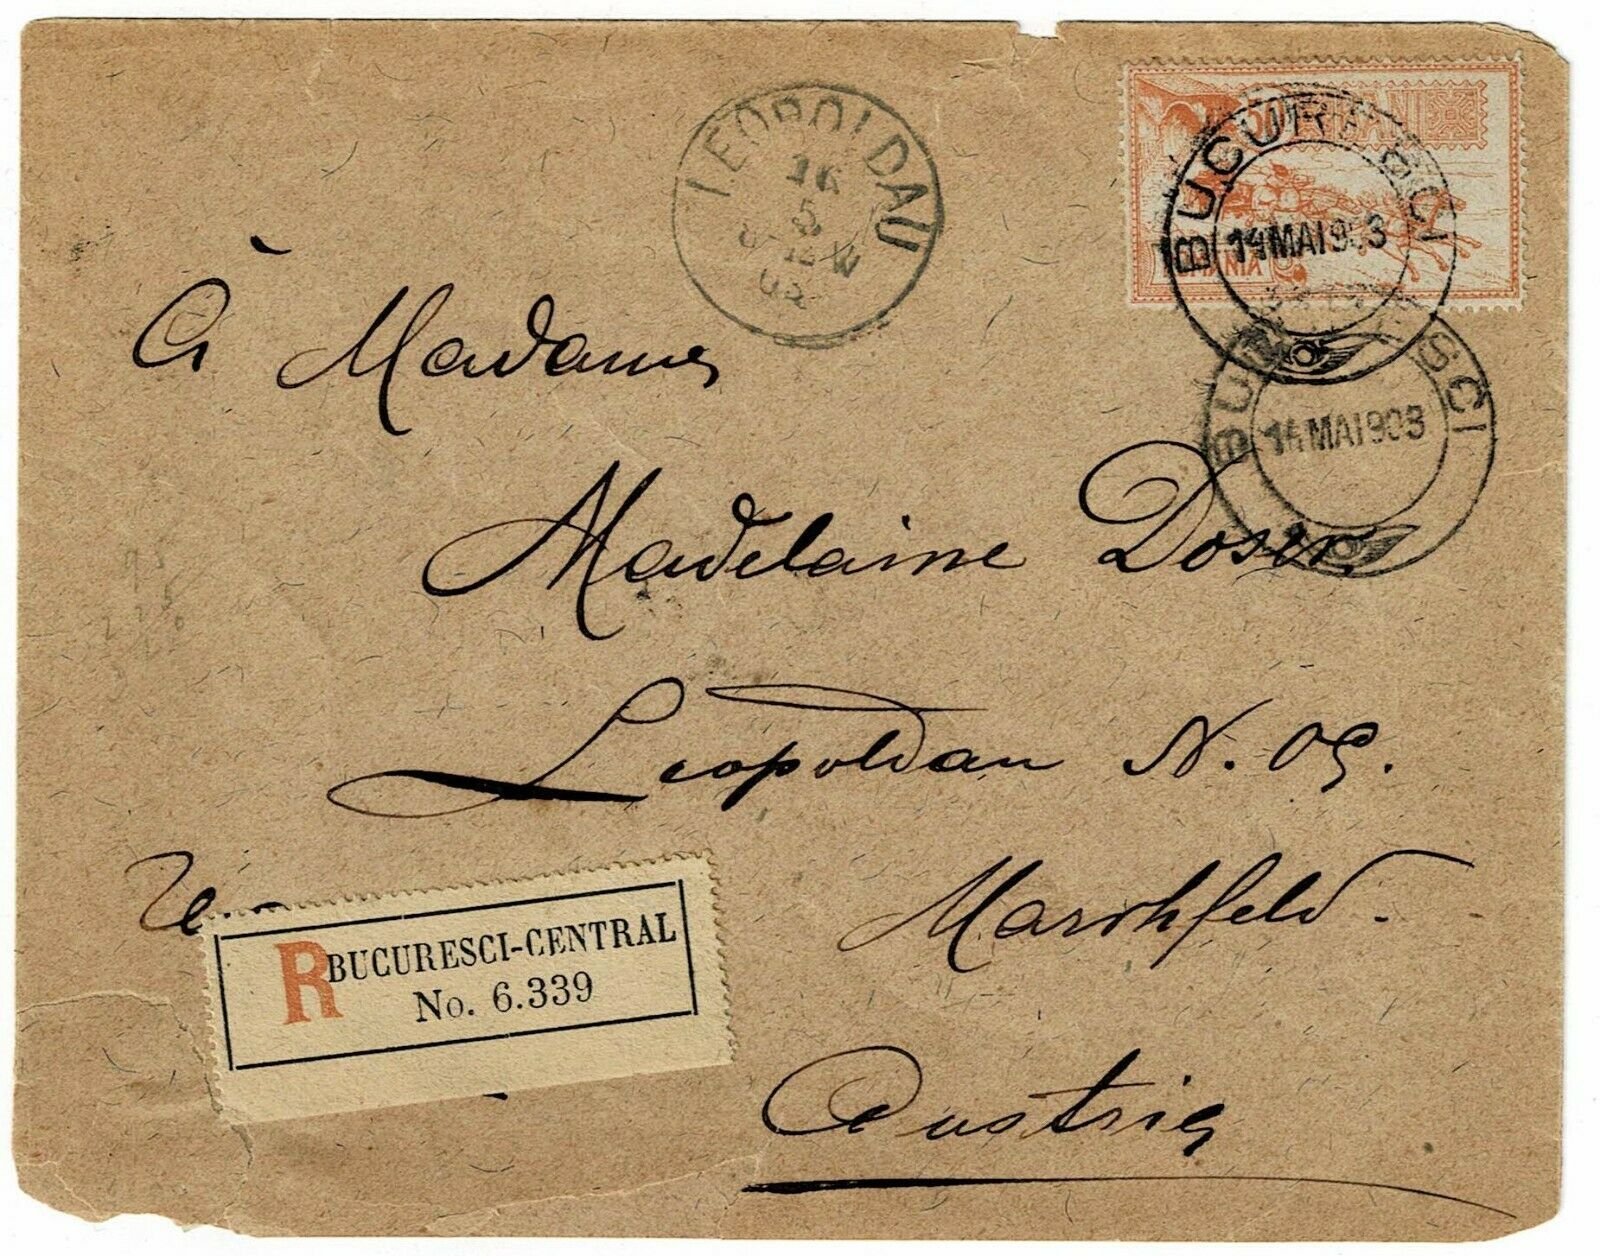 LEOPOLDAU
16
5
03
50 BANI
BUCURESCI
14 MAI 903
BUCURESCI
14 MAI 903
À Madame
Madelaine Doser
Leopoldau N. 09.
Marchfeld.
R BUCURESCI-CENTRAL
No. 6.339
Austria